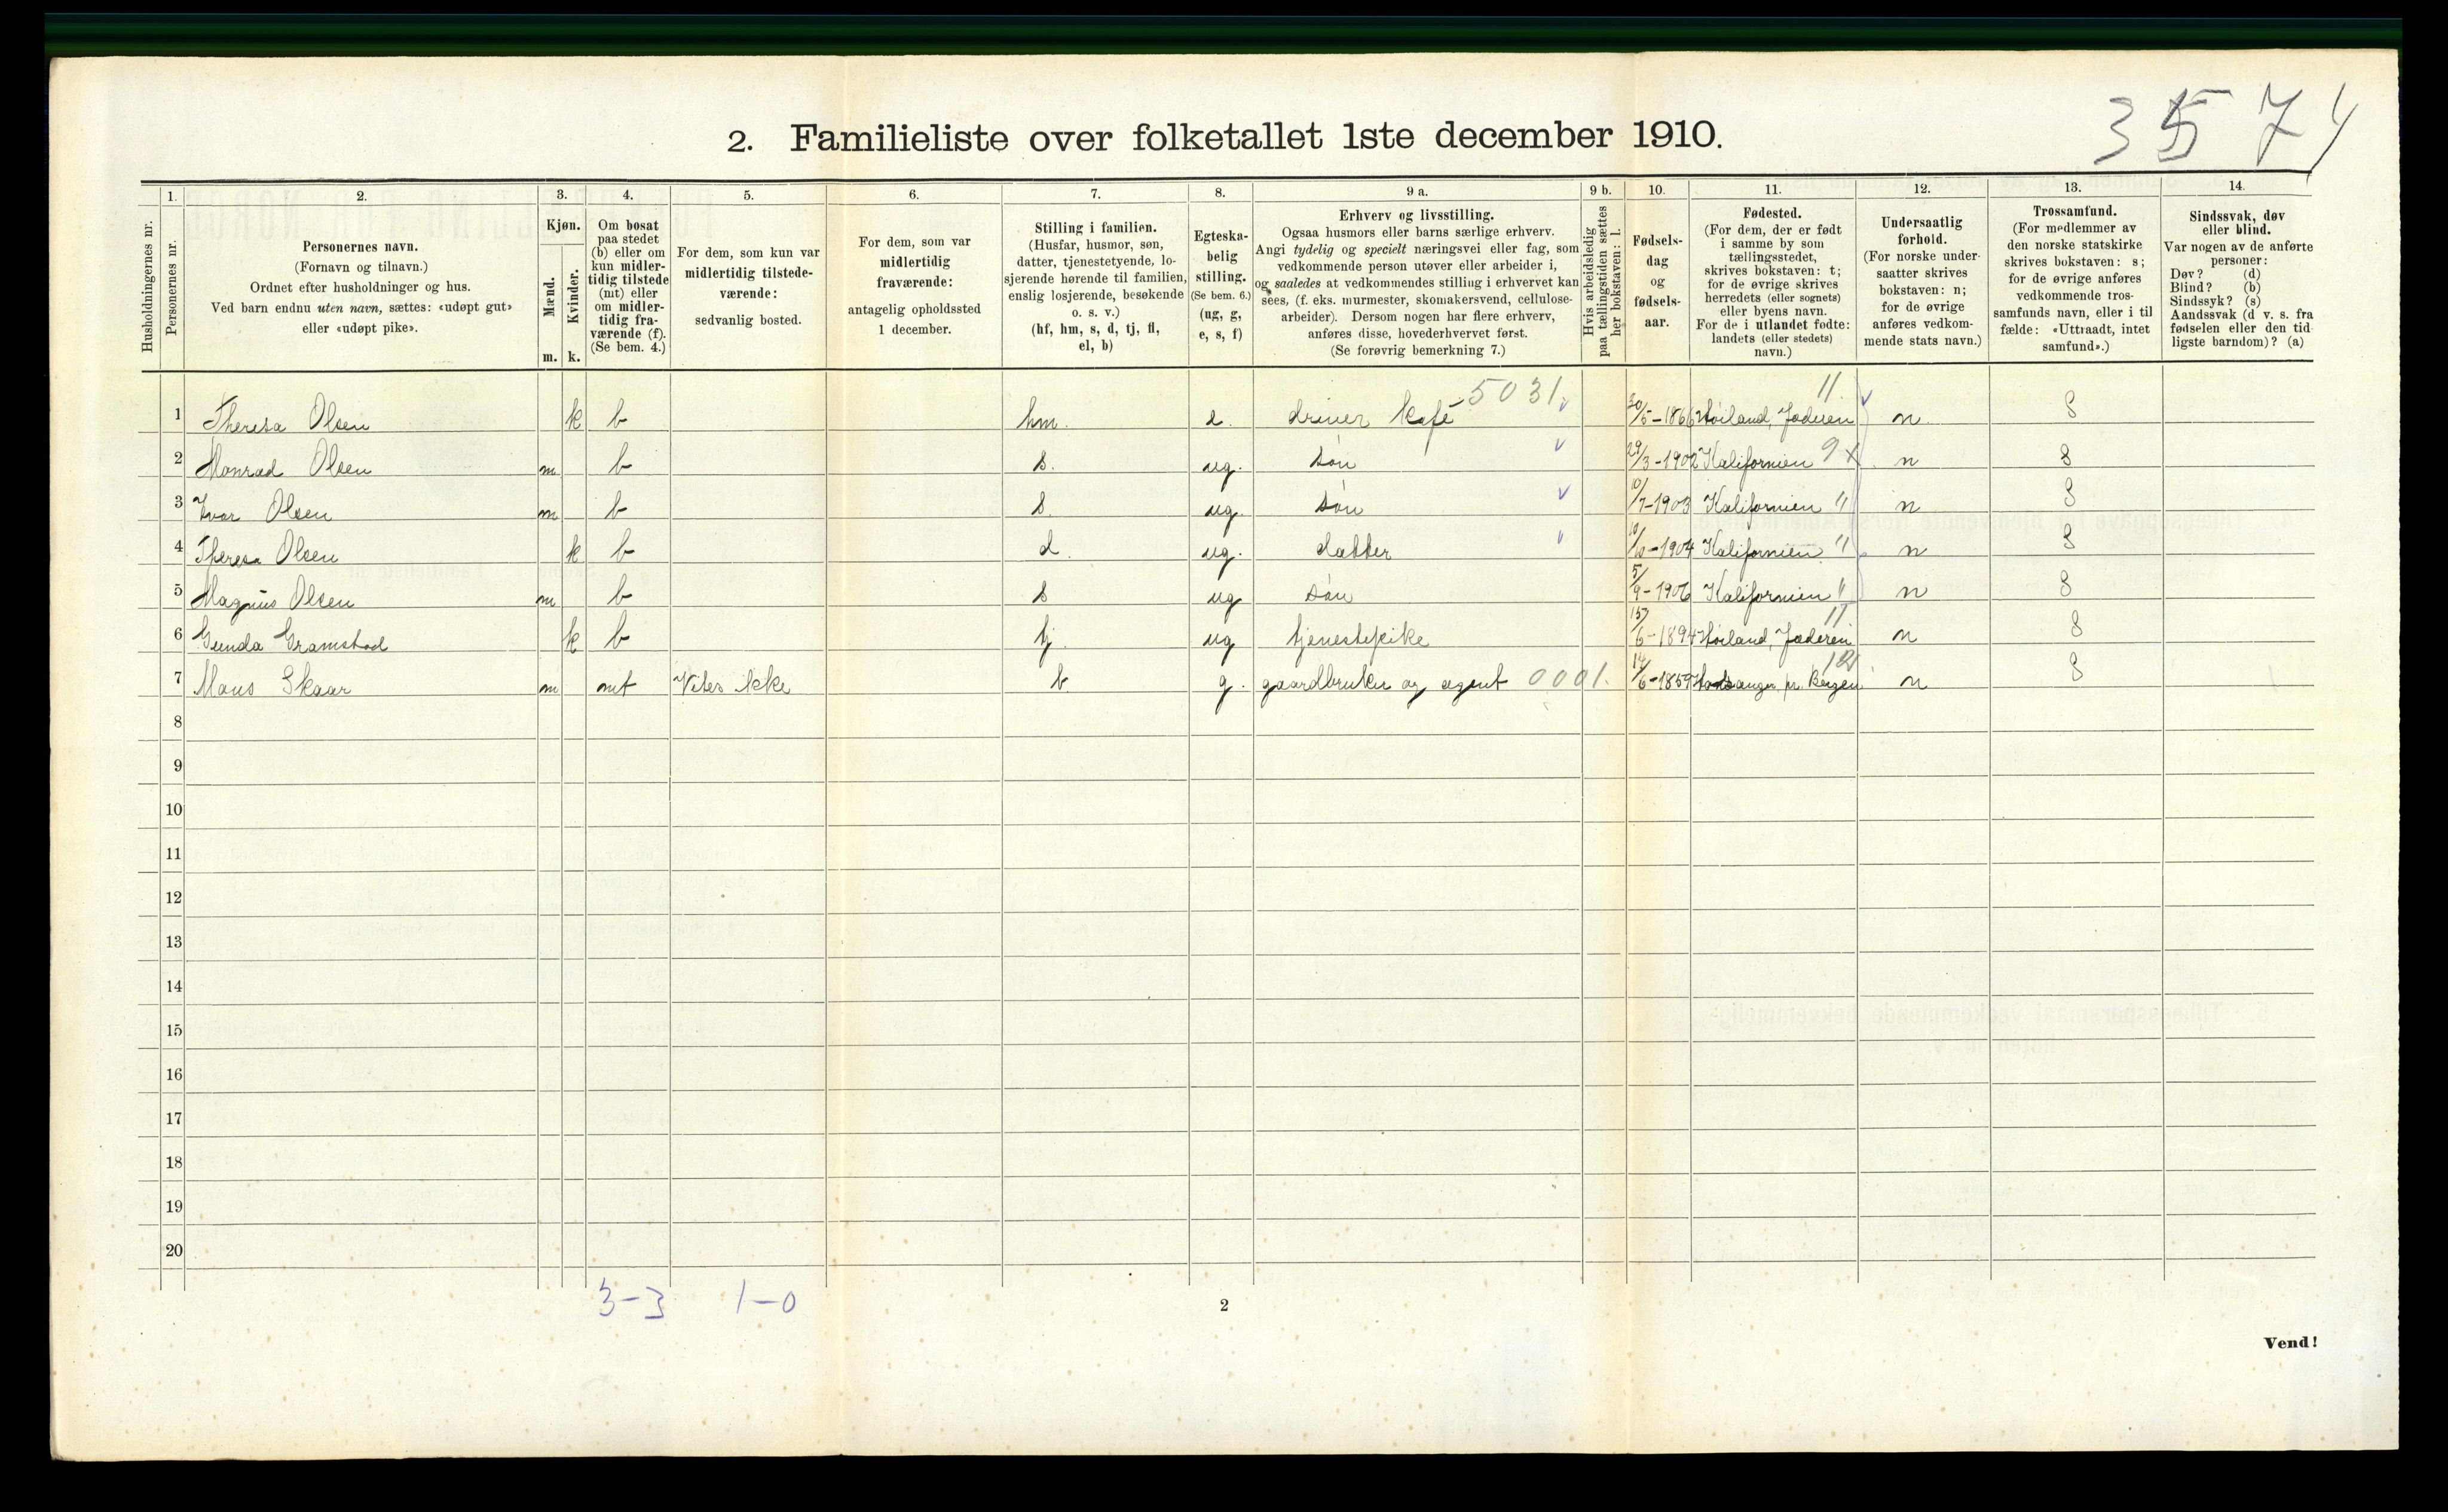 3 5 7 4
2. Familieliste over folketallet 1ste december 1910.
Husholdningernes nr.
1.
Personernes nr.
2.
Personernes navn.
(Fornavn og tilnavn.)
Ordnet efter husholdninger og hus.
Ved barn endnu uten navn, sættes: «udøpt gut»
eller «udøpt pike».
3.
Kjøn.
Mænd.
Kvinder.
m. k.
4.
Om bosat
paa stedet
(b) eller om
kun midler-
tidig tilstede
(mt) eller
om midler-
tidig fra-
værende (f).
(Se bem. 4.)
5.
For dem, som kun var
midlertidig tilstede-
værende:
sedvanlig bosted.
6.
For dem, som var
midlertidig
fraværende:
antagelig opholdssted
1 december.
7.
Stilling i familien.
(Husfar, husmor, søn,
datter, tjenestetyende, lo-
sjerende hørende til familien,
enslig losjerende, besøkende
o. s. v.)
(hf, hm, s, d, tj, fl,
el, b)
8.
Egteska-
belig
stilling.
(Se bem. 6.)
(ug, g,
e, s, f)
9 a.
Erhverv og livsstilling.
Ogsaa husmors eller barns særlige erhverv.
Angi tydelig og specielt næringsvei eller fag, som
vedkommende person utøver eller arbeider i,
og saaledes at vedkommendes stilling i erhvervet kan
sees, (f. eks. murmester, skomakersvend, cellulose-
arbeider). Dersom nogen har flere erhverv,
anføres disse, hovederhvervet først.
(Se forøvrig bemerkning 7.)
9 b.
Hvis arbeidsledig
paa tællingstiden sættes
her bokstaven: l.
10.
Fødsels-
dag
og
fødsels-
aar.
11.
Fødested.
(For dem, der er født
i samme by som
tællingsstedet,
skrives bokstaven: t;
for de øvrige skrives
herredets (eller sognets)
eller byens navn.
For de i utlandet fødte:
landets (eller stedets)
navn.)
12.
Undersaatlig
forhold.
(For norske under-
saatter skrives
bokstaven: n;
for de øvrige
anføres vedkom-
mende stats navn.)
13.
Trossamfund.
(For medlemmer av
den norske statskirke
skrives bokstaven: s;
for de øvrige anføres
vedkommende tros-
samfunds navn, eller i til
fælde: «Uttraadt, intet
samfund».)
14.
Sindssvak, døv
eller blind.
Var nogen av de anførte
personer:
Døv? (d)
Blind? (b)
Sindssyk? (s)
Aandssvak (d v. s. fra
fødselen eller den tid
ligste barndom)? (a)
1 Theresa Olsen k b hm. driver kafé 5031. 30/5-1866 Høiland, Jæderen 11 n s
2 Monrad Olsen m b s. ug. søn 29/3-1902 Kalifornien 9 x n s
3 Ivar Olsen m b s. ug. søn 10/7-1903 Kalifornien " n s
4 Theresa Olsen k b d. ug. datter 10/10-1904 Kalifornien " n s
5 Magnus Olsen m b s ug søn 5/9-1906 Kalifornien " n s
6 Gunda Gramstad k b tj. ug tjenestepike 15/6-1894 Høiland, Jæderen 11 n s
7 Mons Skaar m mt Vites ikke b g. gaardbruker og agent 0001. 14/6-1859 pr. Bergen n s
8
9
10
11
12
13
14
15
16
17
18
19
20
3-3 1-0
2
Vend!